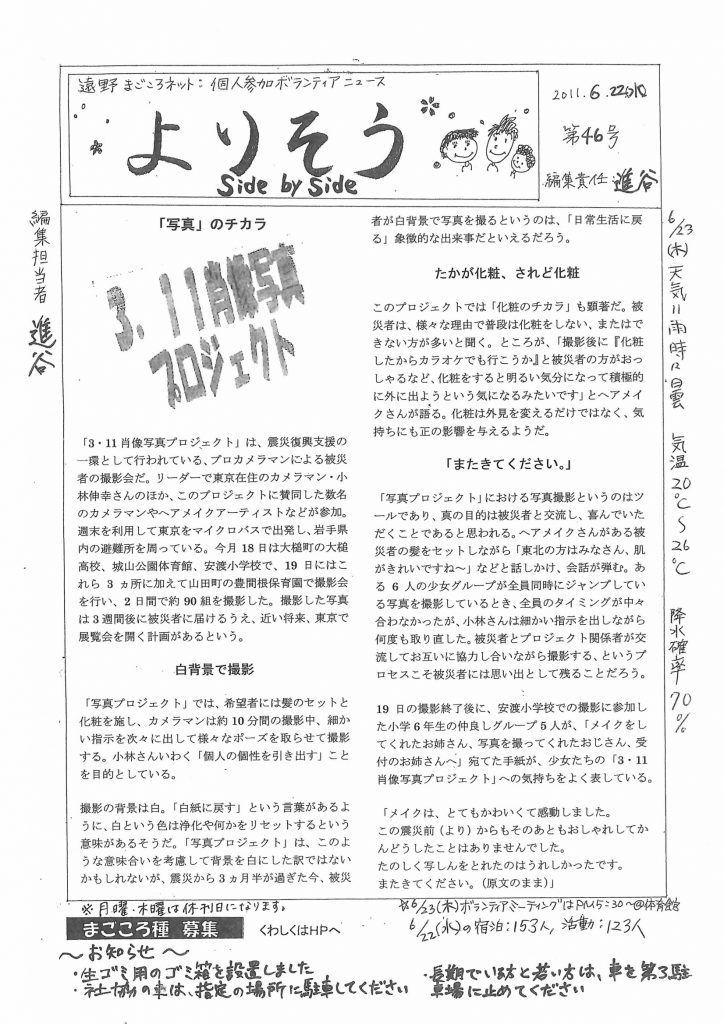 遠野まごころネット：個人参加ボランティアニュース
よりそう
Side by Side
2011.6.22(水)
第46号
編集責任：進谷
編集担当者 進谷
6/23(木)天気＝雨時々曇 気温20℃〜26℃ 降水確率70%
「写真」のチカラ
3．11肖像写真
プロジェクト
「3・11肖像写真プロジェクト」は、震災復興支援の
一環として行われている、プロカメラマンによる被災
者の撮影会だ。リーダーで東京在住のカメラマン・小
林伸幸さんのほか、このプロジェクトに賛同した数名
のカメラマンやヘアメイクアーティストなどが参加。
週末を利用して東京をマイクロバスで出発し、岩手県
内の避難所を周っている。今月18日は大槌町の大槌
高校、城山公園体育館、安渡小学校で、19日にはこ
れら3ヵ所に加えて山田町の豊間根保育園で撮影会
を行い、2日間で約90組を撮影した。撮影した写真
は3週間後に被災者に届けるうえ、近い将来、東京で
展覧会を開く計画があるという。
白背景で撮影
「写真プロジェクト」では、希望者には髪のセットと
化粧を施し、カメラマンは約10分間の撮影中、細か
い指示を次々に出して様々なポーズを取らせて撮影
する。小林さんいわく「個人の個性を引き出す」こと
を目的としている。
撮影の背景は白。「白紙に戻す」という言葉があるよ
うに、白という色は浄化や何かをリセットするという
意味があるそうだ。「写真プロジェクト」は、このよ
うな意味合いを考慮して背景を白にした訳ではない
かもしれないが、震災から3ヵ月半が過ぎた今、被災
者が白背景で写真を撮るというのは、「日常生活に戻
る」象徴的な出来事だといえるだろう。
たかが化粧、されど化粧
このプロジェクトでは「化粧のチカラ」も顕著だ。被
災者は、様々な理由で普段は化粧をしない、またはで
きない方が多いと聞く。ところが、「撮影後に『化粧
したからカラオケでも行こうか』と被災者の方がおっ
しゃるなど、化粧をすると明るい気分になって積極的
に外に出ようという気になるみたいです」とヘアメイ
クさんが語る。化粧は外見を変えるだけではなく、気
持ちにも正の影響を与えるようだ。
「またきてください。」
「写真プロジェクト」における写真撮影というのはツ
ールであり、真の目的は被災者と交流し、喜んでいた
だくことであると思われる。ヘアメイクさんがある被
災者の髪をセットしながら「東北の方はみなさん、肌
がきれいですね〜」などと話しかけ、会話が弾む。あ
る6人の少女グループが全員同時にジャンプしてい
る写真を撮影しているとき、全員のタイミングが中々
合わなかったが、小林さんは細かい指示を出しながら
何度も取り直した。被災者とプロジェクト関係者が交
流してお互いに協力し合いながら撮影する、というプ
ロセスこそ被災者には思い出として残ることだろう。
19日の撮影終了後に、安渡小学校での撮影に参加し
た小学6年生の仲良しグループ5人が、「メイクをし
てくれたお姉さん、写真を撮ってくれたおじさん、受
付のお姉さんへ」宛てた手紙が、少女たちの「3・11
肖像写真プロジェクト」への気持ちをよく表している。
「メイクは、とてもかわいくて感動しました。
この震災前（より）からもそのあともおしゃれしてか
んどうしたことはありませんでした。
たのしく写しんをとれたのはうれしかったです。
またきてください。（原文のまま）」
※月曜・木曜は休刊日になります。
※6/23(木)ボランティアミーティングはPM5：30〜@体育館
まごころ種 募集 くわしくはHPへ
6/22(水)の宿泊：153人，活動：123人
〜お知らせ〜
・生ゴミ用のゴミ箱を設置しました
・社協の車は、指定の場所に駐車してください
・長期でいる方と若い方は、車を第3駐
車場に止めてください